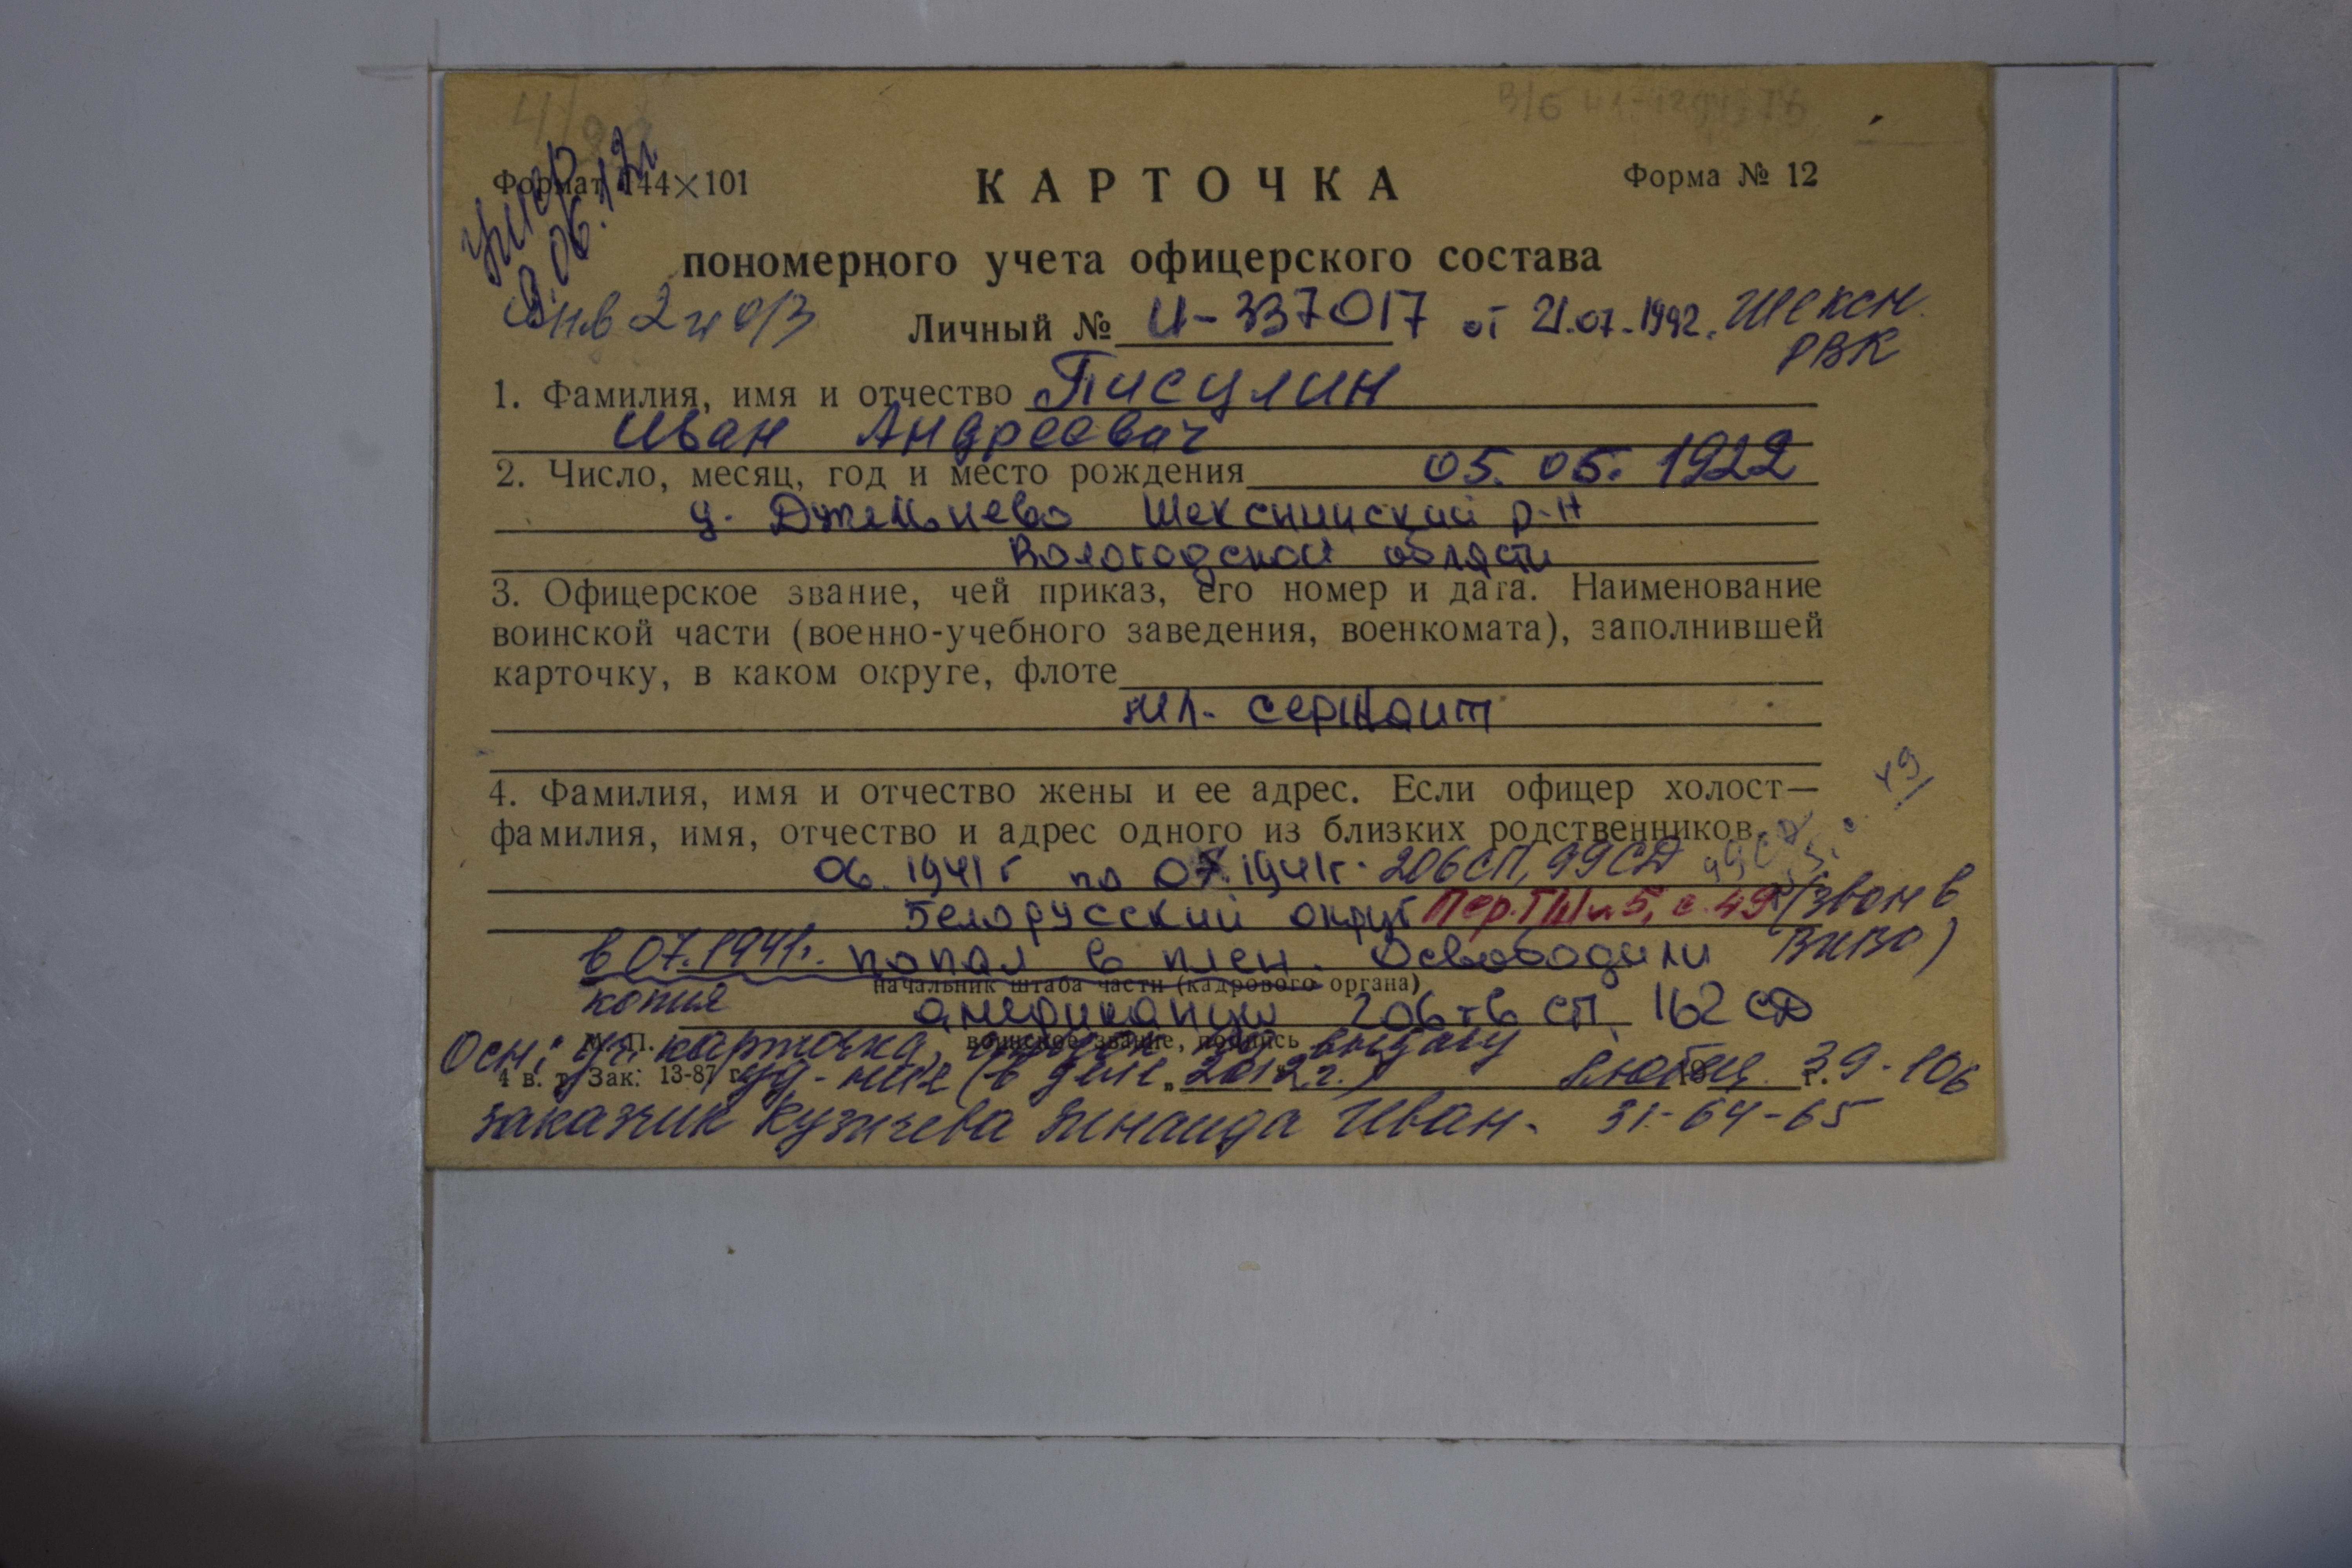 Формат 144×101
КАРТОЧКА
Форма № 12
пономерного учета офицерского состава
Личный № И-337017 от 21.07.1992. Шексн.
РВК
1. Фамилия, имя и отчество Писулин
Иван Андреевич
2. Число, месяц, год и место рождения 05.05.1922
Шекснинский р-н
Вологодской области
3. Офицерское звание, чей приказ, его номер и дата. Наименование
воинской части (военно-учебного заведения, военкомата), заполнившей
карточку, в каком округе, флоте
мл. сержант
4. Фамилия, имя и отчество жены и ее адрес. Если офицер холост—
фамилия, имя, отчество и адрес одного из близких родственников
06.1941г по 07.1941г. 206СП, 99СД
Белорусский округ Пер. ГШ №5, с. 49
в 07.1941г. попал в плен. Освободили
начальник штаба части (кадрового органа)
копия американцы 206 СП, 162 СД
М. П. воинское звание, подпись
Осн: уч. карточка, на выдачу
4 в. т. Зак. 13-87 г.
уд-ния (в деле 2012г.) 39-106
заказчик Кузичева Зинаида Иван. 31-64-65